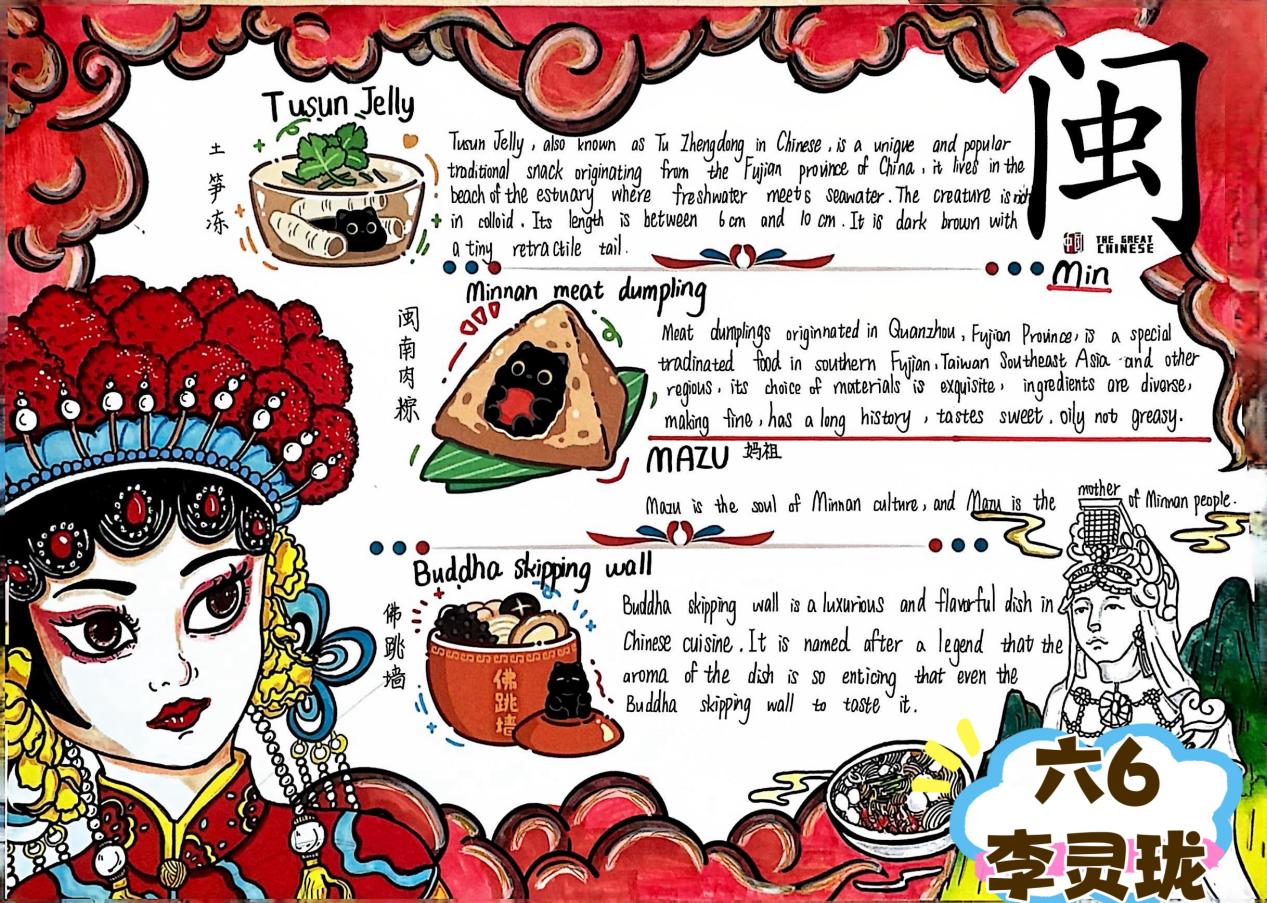 Tusun Jelly
土笋冻
Tusun Jelly, also known as Tu Zhengdong in Chinese, is a unique and popular
traditional snack originating from the Fujian province of China, it lives in the
beach of the estuary where freshwater meets seawater. The creature is rich
in colloid. Its length is between 6cm and 10 cm. It is dark brown with
a tiny retractile tail.
闽
中国
THE GREAT
CHINESE
Min
Minnan meat dumpling
闽南肉粽
Meat dumplings originnated in Quanzhou, Fujian Province, is a special
tradinated food in southern Fujian, Taiwan Southeast Asia and other
regious, its choice of materials is exquisite, ingredients are diverse,
making fine, has a long history, tastes sweet, oily not greasy.
MAZU 妈祖
Mazu is the soul of Minnan culture, and Mazu is the mother of Minnan people.
Buddha skipping wall
佛跳墙
佛跳墙
Buddha skipping wall is a luxurious and flavorful dish in
Chinese cuisine. It is named after a legend that the
aroma of the dish is so enticing that even the
Buddha skipping wall to taste it.
六6
李灵珑